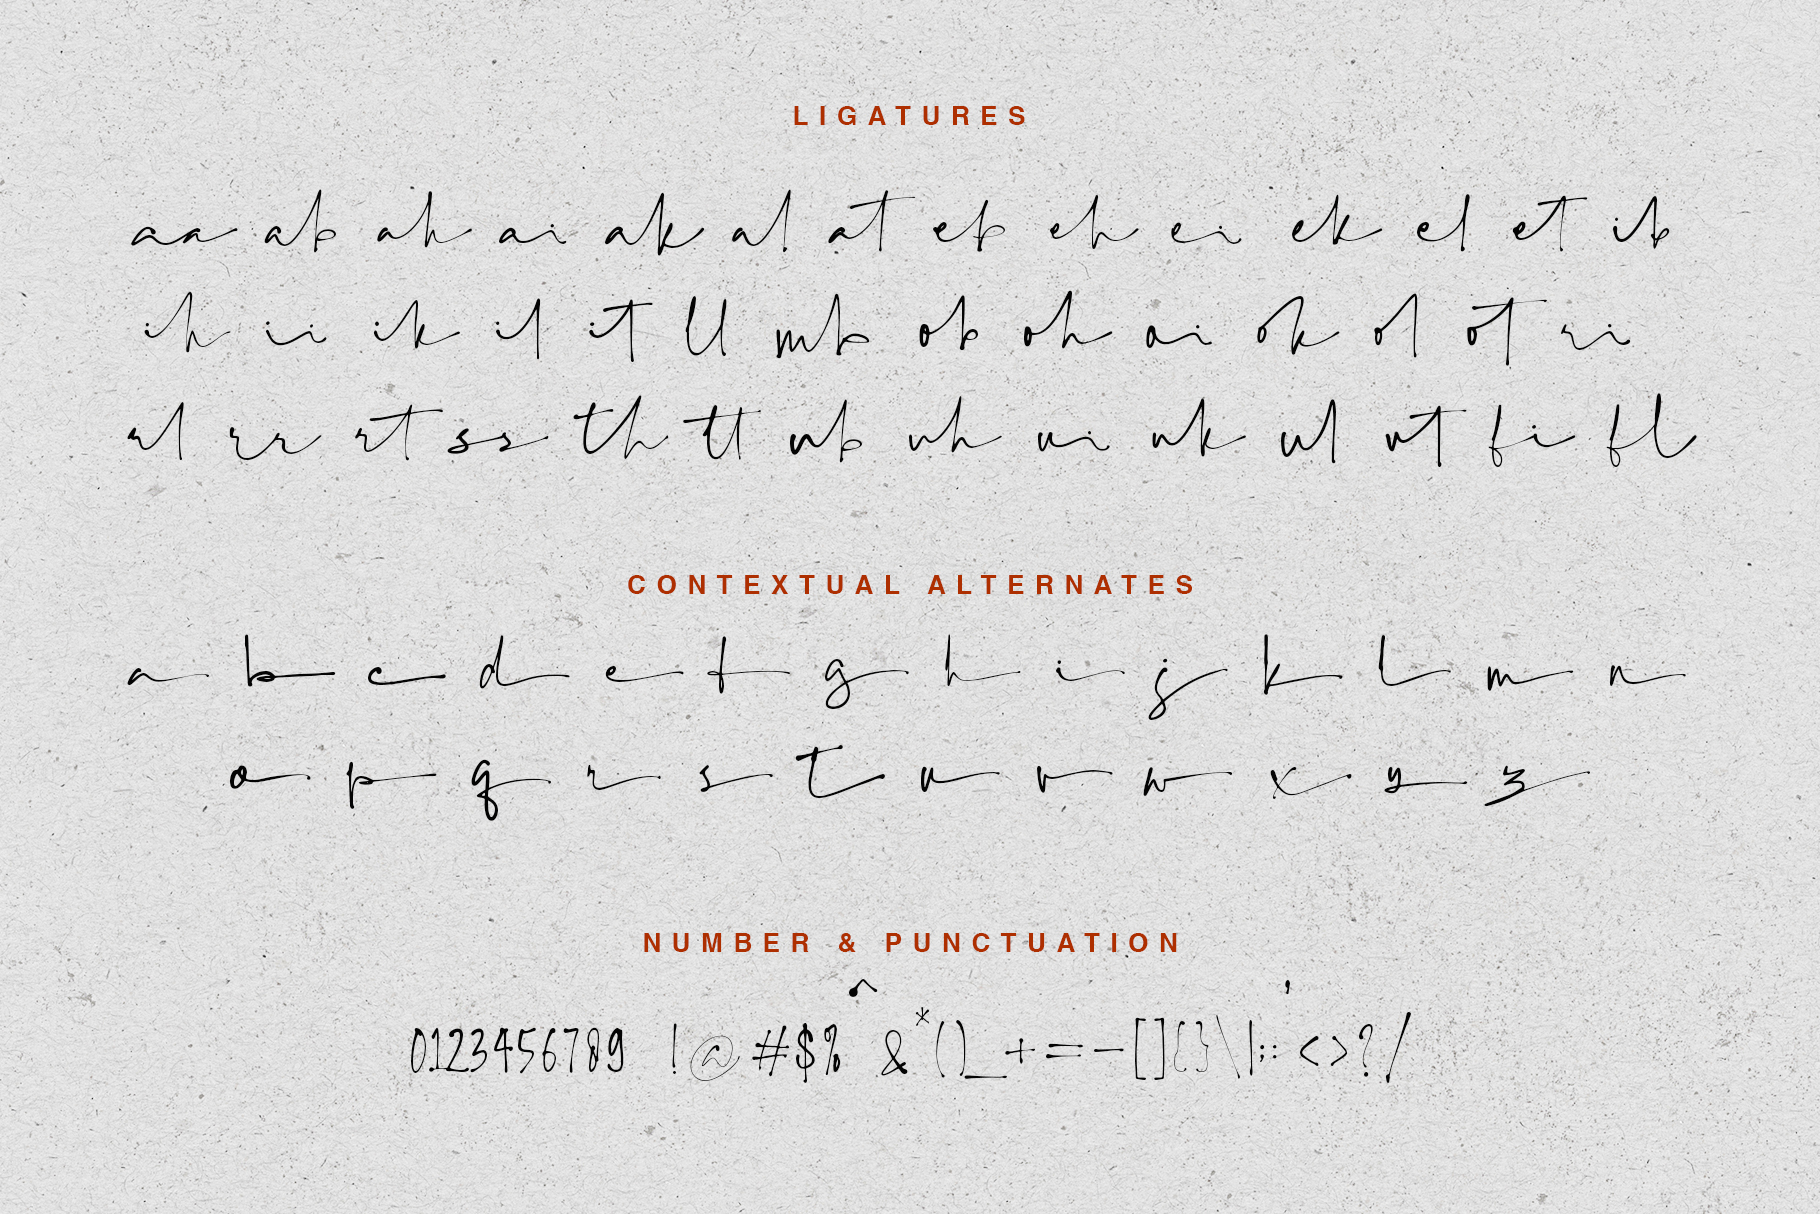 LIGATURES
aa ab ah ai ak al at eb eh ei ek el et ib
ih ii ik il it ll mb ob oh oi ok ol ot ri
rl rr rt ss th tt ub uh ui uk ul ut fi fl
CONTEXTUAL ALTERNATES
a b c d e f g h i j k l m n
o p q r s t u v w x y z
NUMBER & PUNCTUATION
0123456789 !@#$%^&*()_+=-[]{}\|;:'<>?/